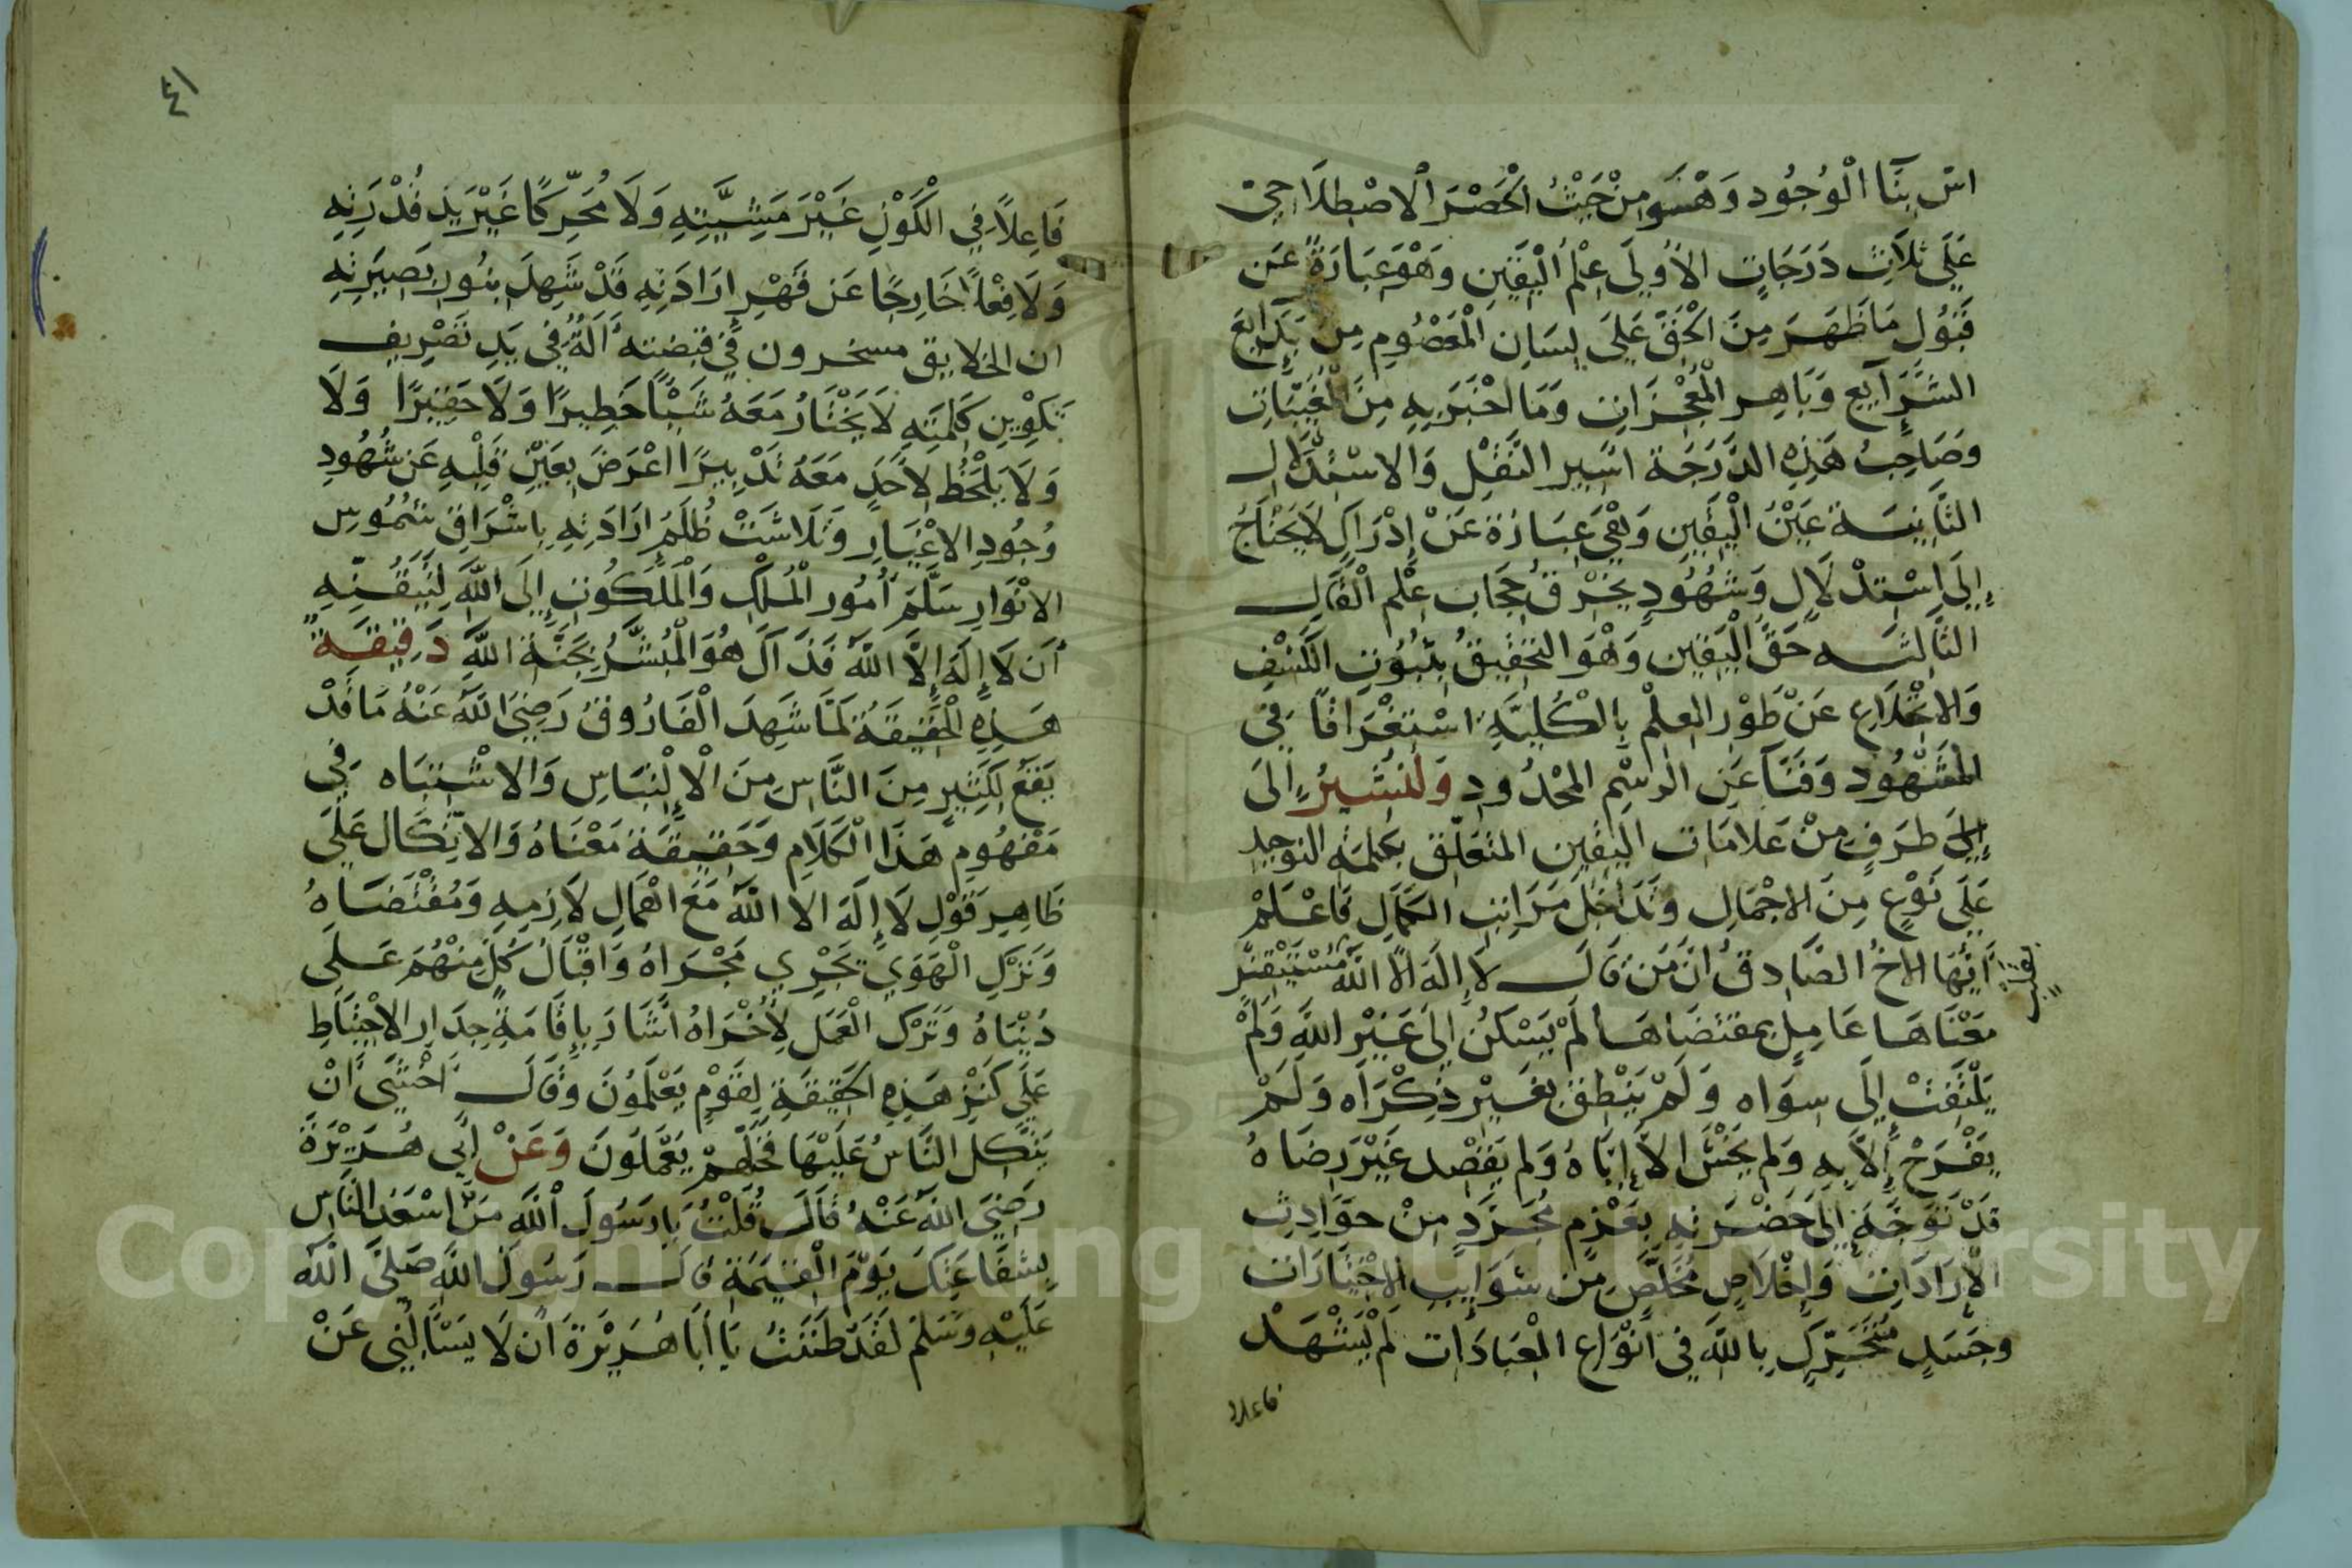 اس بنا الْوُجُود وَهْو مِنْ حَيْثُ الْحَصْرَ الاصْطِلَاحِيّ
عَلَى ثَلَاثِ دَرَجَاتٍ الأُولَى عِلْمُ الْيَقِينِ وَهْوَ عِبَارَةٌ عَن
قَبُولِ مَا ظَهَرَ مِنَ الْحَقِّ عَلَى لِسَانِ الْمَعْصُومِ مِن بَدَايِعَ
الشَّرَآيِعِ وَبَاهِرِ الْمُعْجِزَاتِ وَمَا اخْبَرَ بِهِ مِنَ الْمُغَيَّبَاتِ
وَصَاحِبُ هَذِهِ الدَّرَجَة اسِير النَّقْلِ وَالاسْتِدْلَالِ
الثَّانِيَة عَيْنُ الْيَقِينِ وَهْيَ عِبَارَة عَنْ إِدْرَاكٍ لَا يَحْتَاجُ
إِلَى اسْتِدْلَالٍ وَشُهُودٍ يَخْرِقُ حِجَاب عِلْم الْقَالِ
الثَّالِثَه حَقُّ الْيَقِين وَهْوَ التَّحْقِيقُ بِثُبُوتِ الْكَشْفِ
وَالانْخِلَاعِ عَنْ طَوْرِ العِلْمِ بِالْكُلِّيَّةِ اسْتِغْرَاقًا فِي
الْمَشْهُودِ وَفَنَآ عَنِ الرَّسْمِ المَحْدُودِ وَلْنُشِيرُ إِلَى
إِلَى طَرَفٍ مِنْ عَلَامَات اليَقِين المتَعَلِّق بكلمة التوحيد
عَلَى نَوْعٍ مِنَ الاِجْمَالِ وَتَدَاخُل مَرَاتِب الكَمَال فَاعْلَمْ
أَيُّهَا الاخُ الصَّادِقُ انَّ مَن قَالَ لَا إِلَهَ الَّا اللَّهُ مُسْتَيْقِنٌ
مَعْنَاهَا عَامِلٌ بِمقتضَاهَا لَمْ يَسْكُنْ إِلَى غَيْرِ اللَّهِ وَلَمْ
يَلْتَفِتْ إِلَى سِوَاه وَلَمْ يَنْطِقْ بِغَيْرِ ذِكْرَاه وَلَمْ
يَفْرَحْ إِلَّا بِهِ وَلم يَخْشَ الاَّ إِيَّاهُ وَلم يَقْصِد غَيْرَ رِضَاهُ
قَدْ تَوَجَّهَ إِلَى حَضْرَتِهِ بِعَزْمٍ مُجَرَّدٍ مِنْ حَوَادِثِ
الْإِرَادَاتِ وَإِخْلَاصٍ مُخَلَّصٍ مِن شَوَايِبِ الاخْتِيَارَات
وجَسَدٍ مُتَحَرِّكٍ بِاللَّهِ فِي أَنْوَاعِ الْعِبَادَات لَمْ يَشْهَدْ
فاعلا
٤١
فَاعِلاً فِي الْكَوْنِ غَيْرَ مَشِيَّتِهِ وَلَا مُحَرِّكًا غَيْرَ يَدِ قُدْرَتِهِ
وَلَا فِعْلاً خَارِجًا عَن قَهْرِ إِرَادَتِهِ قَدْ شَهِدَ بِنُورِ بَصِيرَتِهِ
ان الخلايق مسخرون فِي قبضته أَلَةٌ فِي يَدِ تَصْرِيفِ
تَكْوِينِ كَلِمَتِهِ لَا يَخْتَارُ مَعَهُ شَيْأً خَطِيرًا وَلَا حَقِيرًا وَلَا
وَلَا يَلْحَظُ لِأَحَدٍ مَعَهُ تَدْبِيرًا اعْرَضَ بِعَيْنِ قَلْبِهِ عَن شُهُودِ
وُجُودِ الاغْيَارِ وَتَلَاشَتْ ظُلَمُ ارَادَتِهِ بِاشْرَاقِ شُمُوسِ
الانْوَارِ سَلَّمَ أُمُور الْمُلْكِ وَالْمَلَكُوتِ إِلَى اللَّهِ لِتَيَقُّنِهِ
أَن لَا إِلَهَ إِلَّا اللَّهُ فَذَاكَ هُوَ الْمُبَشَّرُ بِجَنَّة اللَّهِ دَقِيقَةٌ
هَذِهِ الْحَقِيقَةُ لَمَّا شَهِدَ الْفَارُوقُ رَضِيَ اللَّهُ عَنْهُ مَا قَدْ
يَقَعُ لِكَثِيرٍ مِنَ النَّاسِ مِنَ الْإِلْتِبَاسِ وَالاشْتِبَاه فِي
مَفْهُومِ هَذَا الْكَلَامِ وَحَقِيقَة مَعْنَاهُ وَالاتِّكَال عَلَى
ظَاهِرِ قَوْلِ لَا إِلَهَ الا اللَّهُ مَعَ اهْمَالِ لَازِمِهِ وَمُقْتَضَاهُ
وَتَرْكِ الْهَوَى تَجْرِي مَجْرَاهُ وَاقْبَالُ كُلٍّ مِنْهُمْ عَلَى
دُنْيَاهُ وَتَرْك الْعَمَل لِأُخْرَاهُ أَشَارَ بِإِقَامَةِ جِدَارِ الاحْتِيَاطِ
عَلَى كَنْزِ هَذِهِ الحَقِيقَةِ لِقَوْمٍ يَعْلَمُونَ وَقَالَ اخْشَى أَنْ
يَتَّكِل النَّاسُ عَلَيْهَا فَخَلِّهِمْ يَعْمَلُونَ وَعَنْ ابِي هُرَيْرَةَ
رَضِيَ اللَّهُ عَنْهُ قَالَ قُلْتُ يَا رَسُولَ اللَّهِ مَنْ اسْعَد النَّاسِ
بِشَفَاعَتِكَ يَوْمَ الْقِيَمَةِ قَالَ رَسُولُ اللَّهِ صَلَّى اللَّه
عَلَيْهِ وَسَلَّمَ لَقَدْ ظَنَنْتُ يَا أَبَا هُرَيْرَةَ أَن لَا يَسْأَلُنِي عَنْ
Copyright © King Saud University